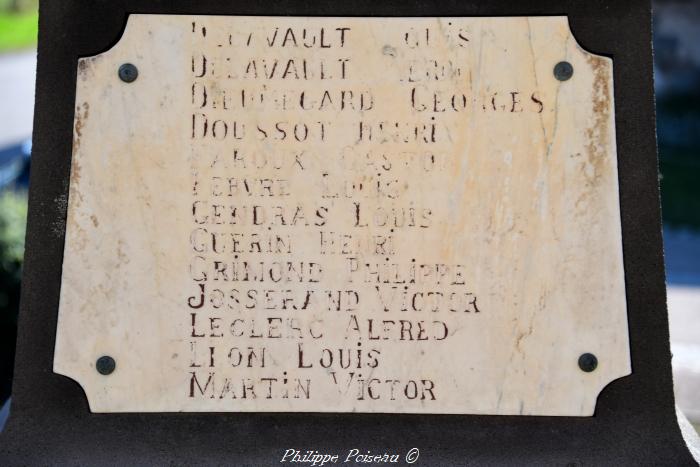 DELAVAULT LOUIS
DELAVAULT
DIEUMEGARD GEORGES
DOUSSOT HENRI
FAROUX GASTON
FEBVRE LOUIS
GENDRAS LOUIS
GUERIN HENRI
GRIMOND PHILIPPE
JOSSERAND VICTOR
LECLERC ALFRED
LION LOUIS
MARTIN VICTOR
Philippe Poiseau ©